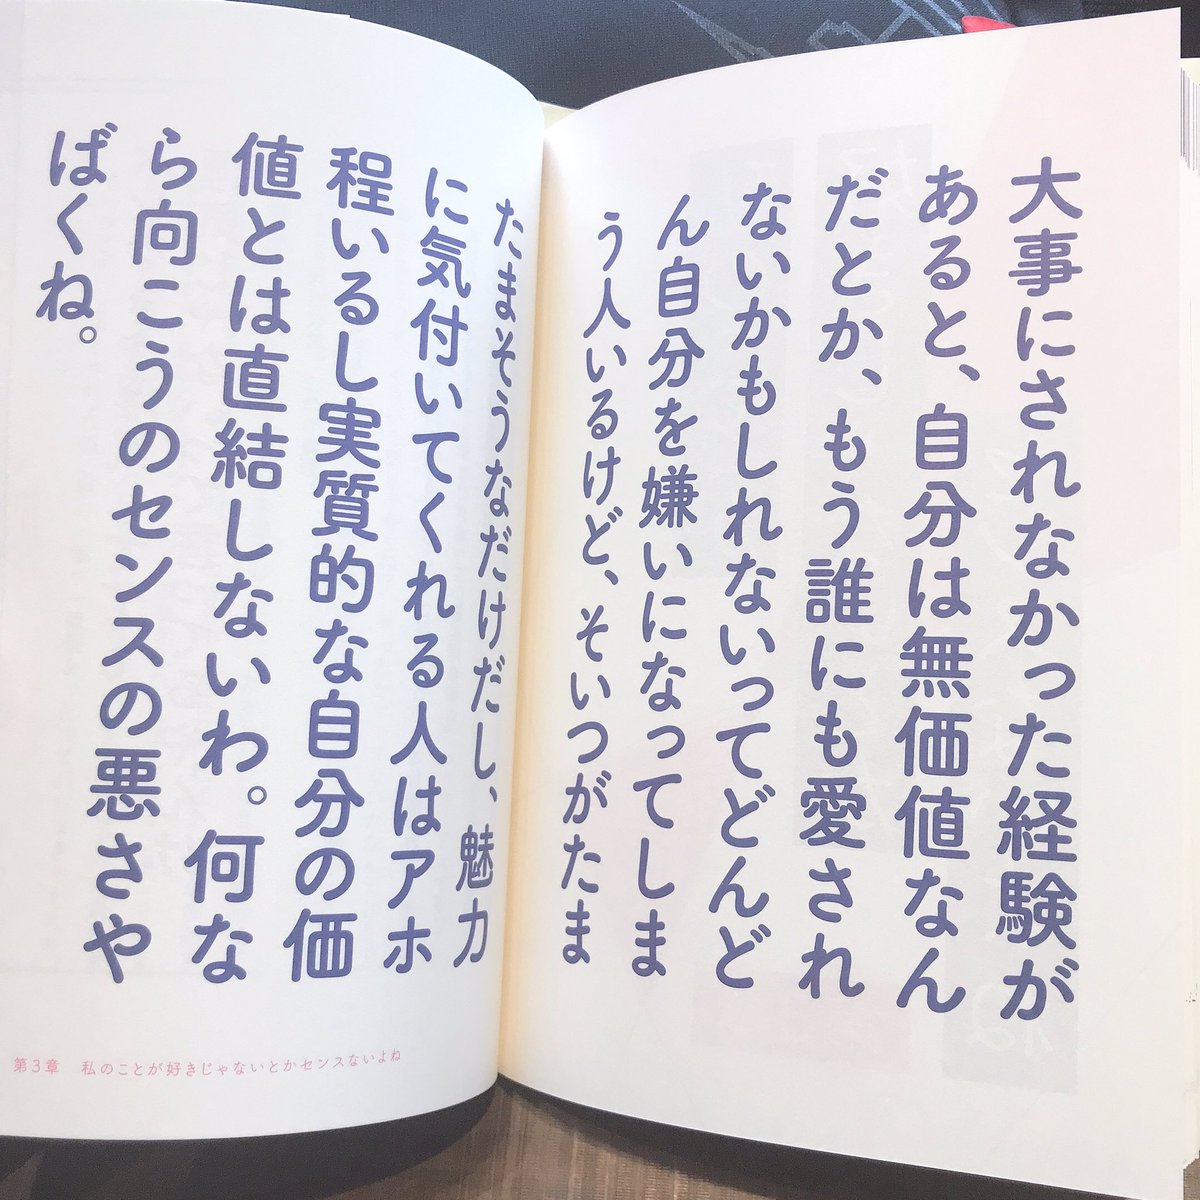 大事にされなかった経験が
あると、自分は無価値なん
だとか、もう誰にも愛され
ないかもしれないってどんど
ん自分を嫌いになってしま
う人いるけど、そいつがたま
たまそうなだけだし、魅力
に気付いてくれる人はアホ
程いるし実質的な自分の価
値とは直結しないわ。何な
ら向こうのセンスの悪さや
ばくね。
第3章 私のことが好きじゃないとかセンスないよね